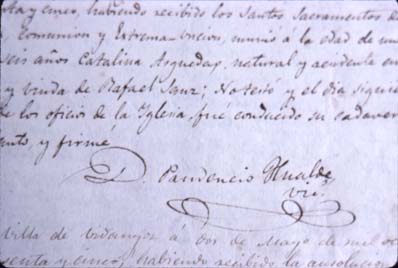 ta y cinco, habiendo recibido los Santos Sacramentos de
Comunion y Extrema-uncion, murió á la edad de
seis años Catalina Arguedas, natural y residente en
y viuda de Rafael Sanz; No testó y el dia sigui
los oficios de la Iglesia fué conducido su cadaver
ento, y firmé
D. Prudencio Hualde
Vic.
villa de Vidangoz á dos de Mayo de mil oc
senta y cinco, habiendo recibido la absolucion